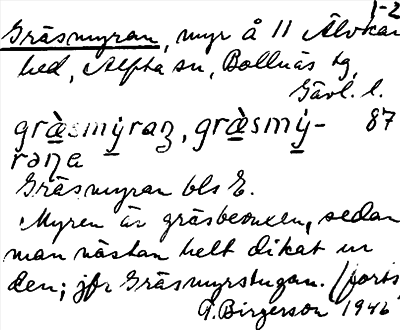 1-2
Gräsmyran, myr å 11 Älvkar
hed, Alfta sn, Bollnäs tg,
Gävl. l.
græ̀smy̍raƞ, græ̀smy̍- 87
rəƞa
Gräsmyran bls E.
Myren är gräsbevuxen, sedan
man nästan helt dikat ur
den; jfr Gräsmyrstugan. (forts
P. Birgerson 1946